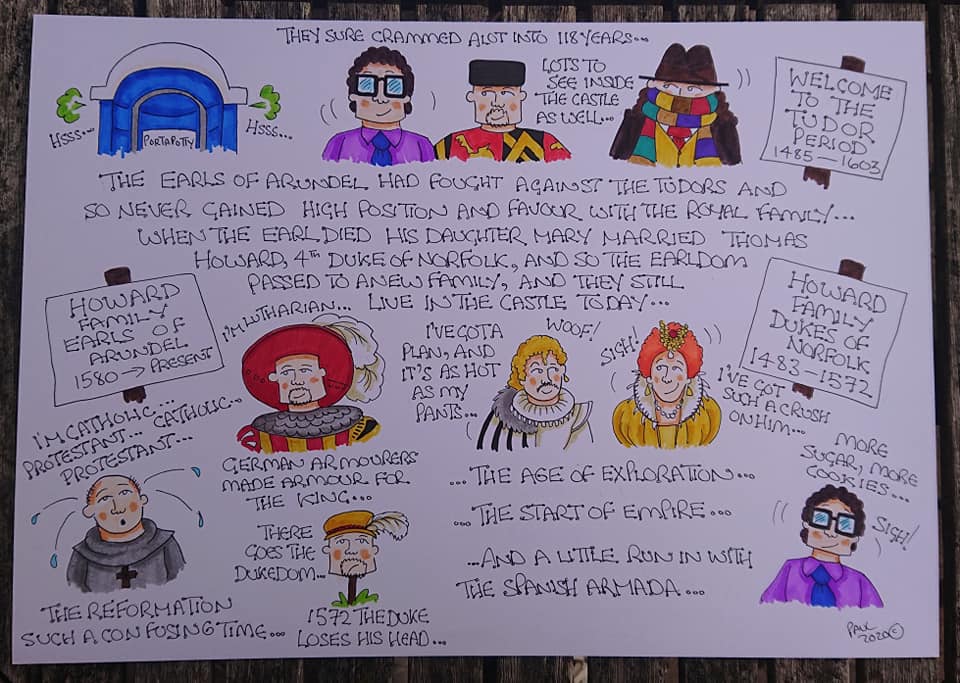 THEY SURE CRAMMED ALOT INTO 118 YEARS...
HSSS...
PORTAPOTTY
HSSS...
LOTS TO
SEE INSIDE
THE CASTLE
AS WELL...
WELCOME
TO THE
TUDOR
PERIOD
1485—1603
THE EARLS OF ARUNDEL HAD FOUGHT AGAINST THE TUDORS AND
SO NEVER GAINED HIGH POSITION AND FAVOUR WITH THE ROYAL FAMILY...
WHEN THE EARL DIED HIS DAUGHTER MARY MARRIED THOMAS
HOWARD, 4TH DUKE OF NORFOLK, AND SO THE EARLDOM
PASSED TO A NEW FAMILY, AND THEY STILL
LIVE IN THE CASTLE TODAY...
HOWARD
FAMILY
EARLS OF
ARUNDEL
1580 → PRESENT
I'M LUTHARIAN...
I'VE GOT A
PLAN, AND
IT'S AS HOT
AS MY
PANTS...
WOOF!
SIGH!
I'VE GOT
SUCH A CRUSH
ON HIM...
HOWARD
FAMILY
DUKES OF
NORFOLK
1483—1572
I'M CATHOLIC...
PROTESTANT... CATHOLIC...
PROTESTANT...
GERMAN ARMOURERS
MADE ARMOUR FOR
THE KING...
THERE
GOES THE
DUKEDOM...
THE REFORMATION
SUCH A CONFUSING TIME...
1572 THE DUKE
LOSES HIS HEAD...
...THE AGE OF EXPLORATION...
...THE START OF EMPIRE...
...AND A LITTLE RUN IN WITH
THE SPANISH ARMADA...
MORE
SUGAR, MORE
COOKIES...
SIGH!
PAUL
2020©